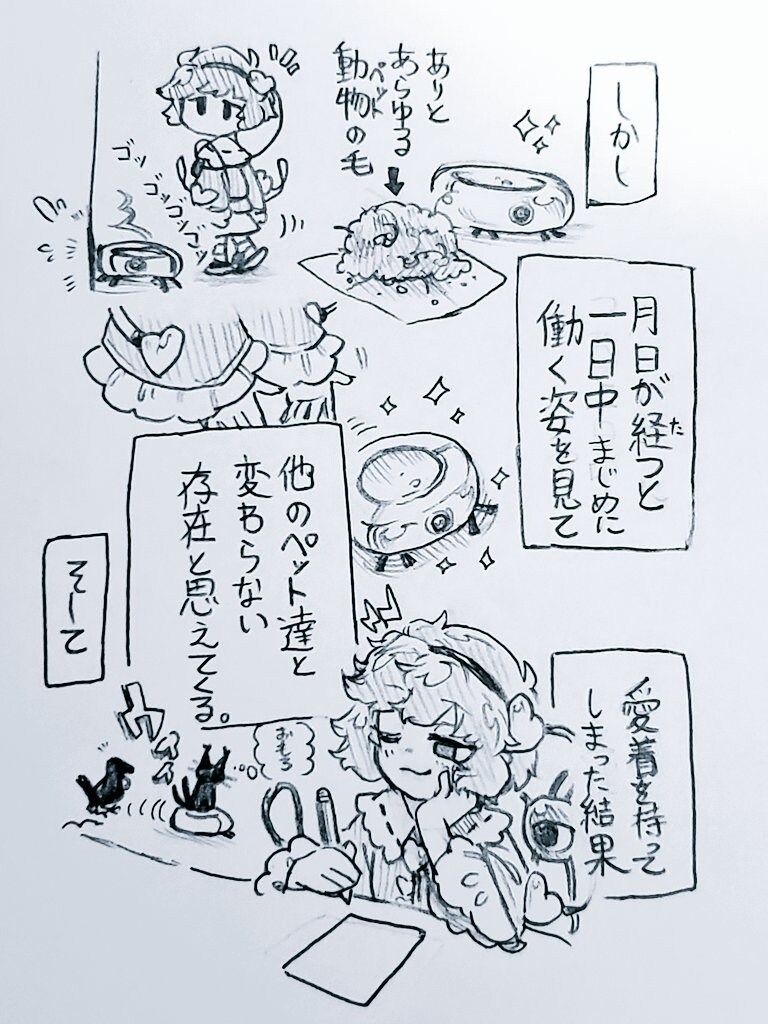 しかし
ありと
あらゆる
動物の毛
ペット
ゴッ
ゴッ
ゴンゴンゴッ
月日が経つと
た
一日中まじめに
働く姿を見て
他のペット達と
変わらない
存在と思えてくる。
そして
愛着を持って
しまった結果
おもろ
ウィィ